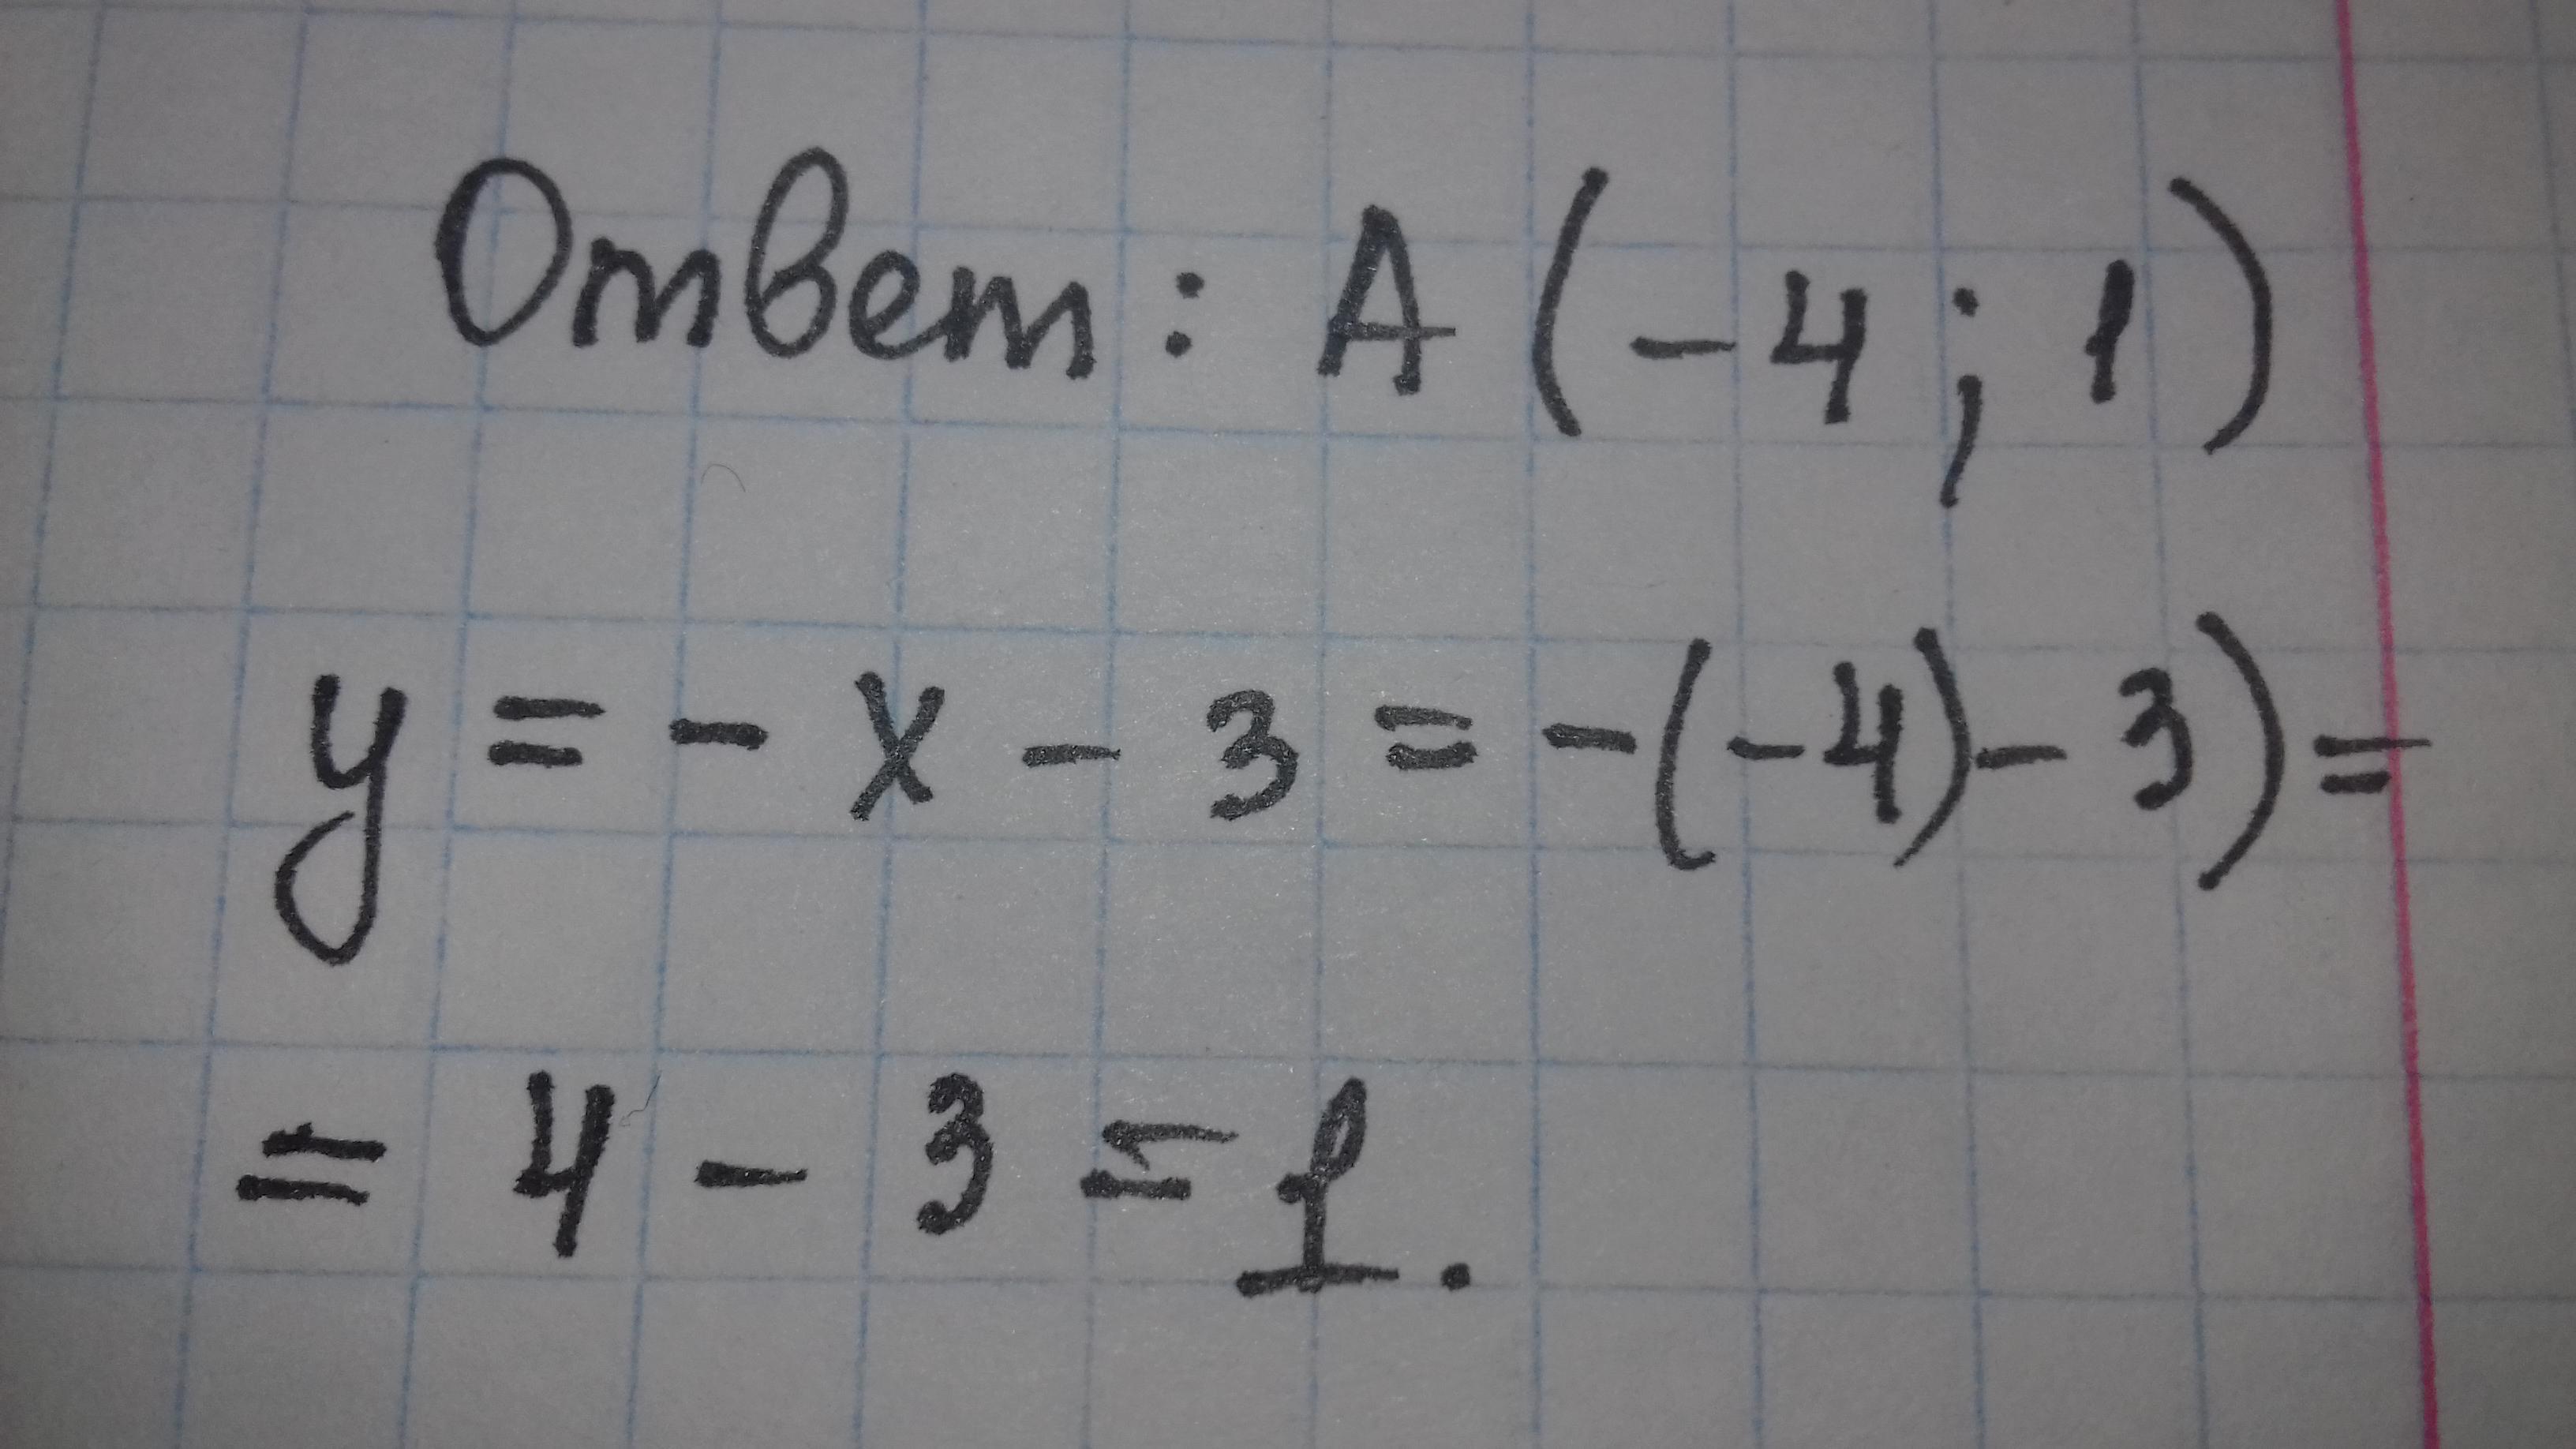 Ответ: А (-4 ; 1)
y = - x - 3 = -(-4)- 3) =
= 4 - 3 = 1.